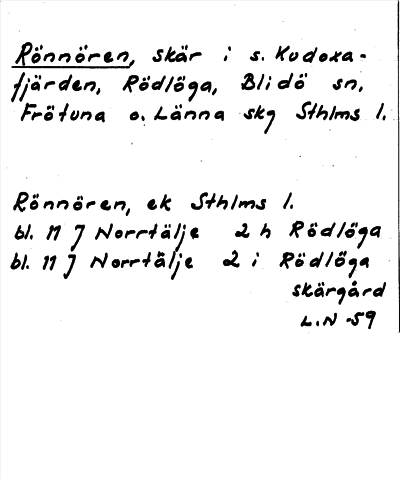 Rönnören, skär i s. Kudoxa-
fjärden, Rödlöga, Blidö sn,
Frötuna o. Länna skg Sthlms l.
Rönnören, ek Sthlms l.
bl. 11 J Norrtälje 2 h Rödlöga
bl. 11 J Norrtälje 2 i Rödlöga
skärgård
L.N -59